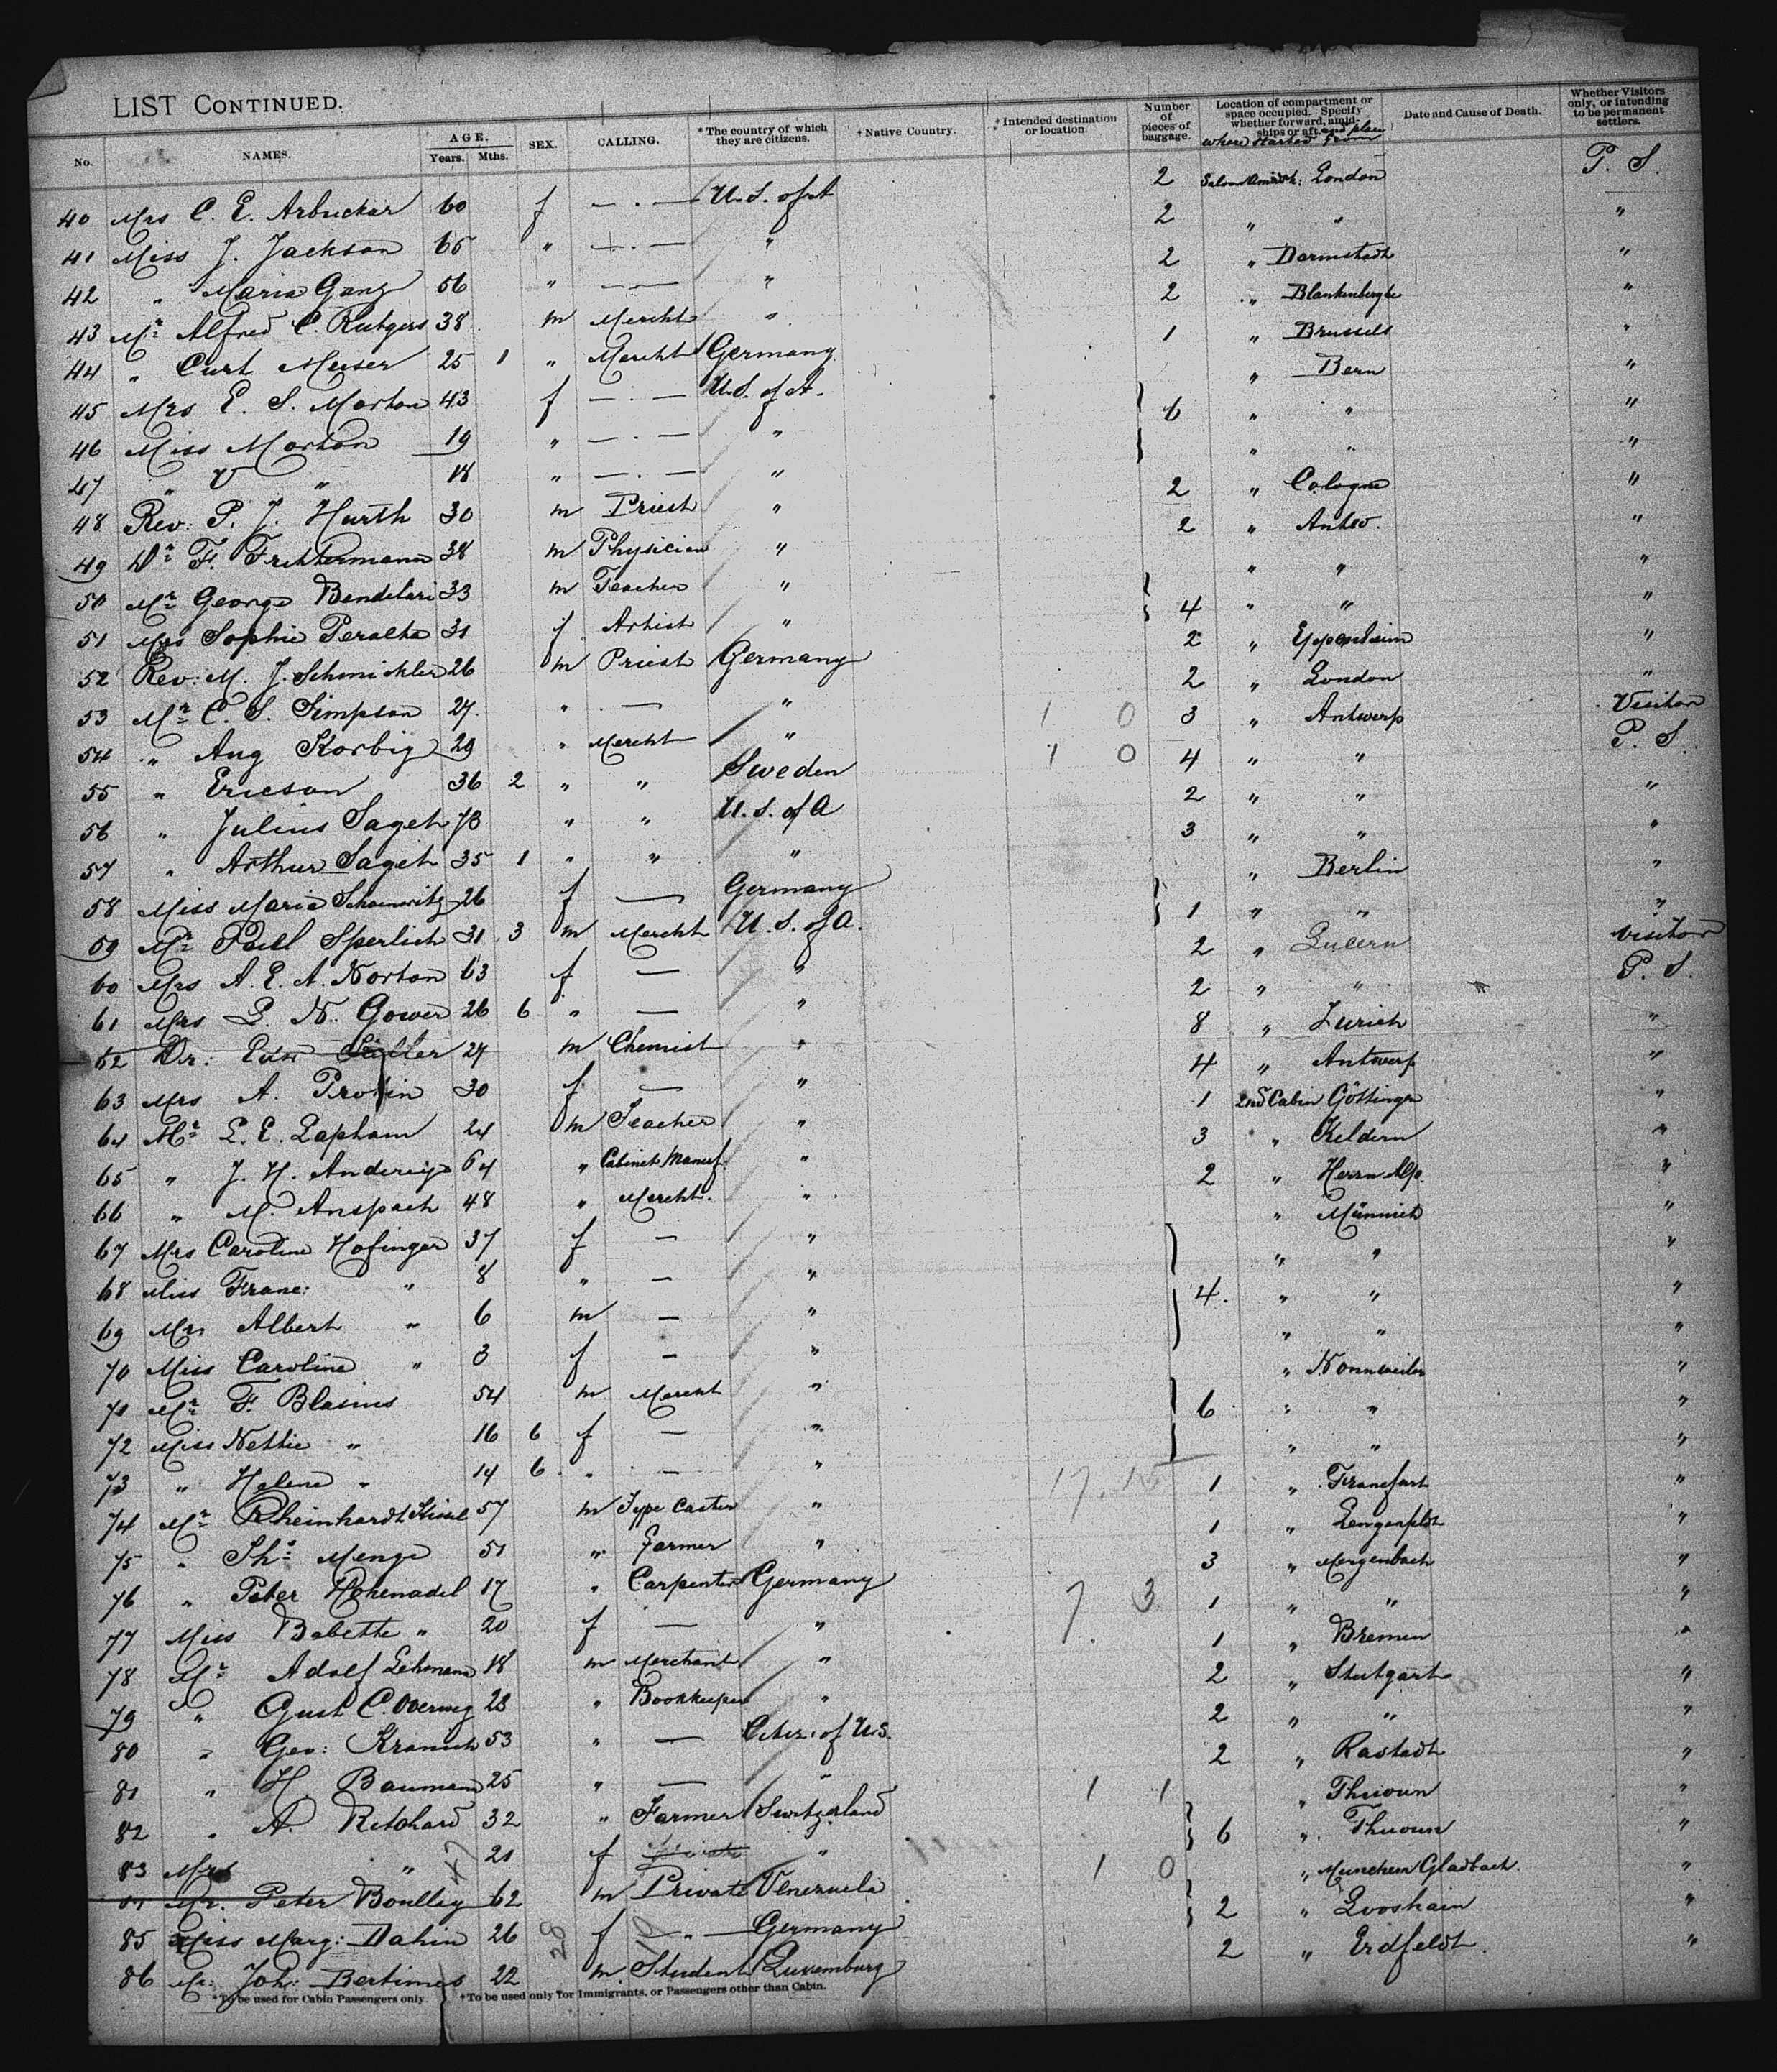 LIST CONTINUED.
No. NAMES. AGE. Years. Mths. SEX. CALLING. *The country of which they are citizens. †Native Country. †Intended destination or location. Number of pieces of baggage. Location of compartment or space occupied. Specify whether forward, amidships or aft. and place where started from Date and Cause of Death. Whether Visitors only, or intending to be permanent settlers.
40 Mrs C. E. Arbuckar 60 f — . — U.S. of A 2 London P. S.
41 Miss J. Jackson 65 " — . — " 2 " " "
42 " Maria Ganz 56 " — " 2 " Darmstadt "
43 Mr. Alfred C. Rutgers 38 m Mercht " 2 " Blankenberghe "
44 " Curt Meiser 25 1 " Mercht Germany 1 " Brussels "
45 Mrs E. S. Morton 43 f — . — U.S. of A. " Bern "
46 Miss Morton 19 " — . — " 6 " " "
47 " V " 18 " — . — " " " "
48 Rev: P. J. Hurth 30 m Priest " 2 " Cologne "
49 Dr. F. 38 m Physician " 2 " Antw. "
50 Mr. George Bendelari 33 m Teacher " " " "
51 Mrs Sophie Peralta 31 f Artist " 4 " " "
52 Rev: M. J. Schmickler 26 m Priest Germany 2 " "
53 Mr. C. S. Simpson 27. " — " 2 " London "
54 " Aug Korbig 29 " Mercht " 1 0 3 " Antwerp Visitor
55 " Ericson 36 2 " " Sweden 1 0 4 " " P. S.
56 " Julius Saget 73 " " U. S. of A 2 " " "
57 " Arthur Saget 35 1 " " " 3 " " "
58 Miss Maria 26 f — Germany " Berlin "
59 Mr. Paul Sperlich 31 3 m Mercht U. S. of A. 1 " " "
60 Mrs A. E. A. Norton 63 f — " 2 " Lucern visitor
61 Mrs L. N. Gower 26 6 " — " 2 " " P. S.
62 Dr: 27 m Chemist " 8 " Zurich "
63 Mrs A. 30 f — " 4 " Antwerp "
64 Mr. L. E. Lapham 24 m Teacher " 1 2nd Cabin Göttingen "
65 " J. H. 64 " Cabinet Manuf. " 3 " Keldern "
66 " M. Anspach 48 " Mercht. " 2 " "
67 Mrs Caroline Hofinger 37 f — " " Münnich "
68 Miss Franc: " 8 " — " " " "
69 Mr. Albert " 6 m — " 4. " " "
70 Miss Caroline " 3 f — " " " "
71 Mr. F. Blasius 54 m Mercht " " Nonnweiler "
72 Miss Nettie " 16 6 f — " 6 " " "
73 " Helene " 14 6 " — " " " "
74 Mr. Rheinhardt 57 m Type Caster " 17.15 1 " Francfurt "
75 " Menge 51 " Farmer " 1 " Lengenfeldt "
76 " Peter Hohenadel 17 " Carpenter Germany 3 " "
77 Miss Babette " 20 f — " 7 3 1 " " "
78 Mr. Adolf Lehmann 18 m Merchant " 1 " Bremen "
79 " Gust C. Overweg 28 " Bookkeeper " 2 " Stutgart "
80 " Geo: 53 " — Citiz: of U.S. 2 " " "
81 " H. Baumann 25 " — " 2 " Rastadt "
82 " A. Ritchard 32 " Farmer Switzerland 1 1 " Thuoun "
83 Mrs " 21 f " 6 " Thuoun "
84 Mr. Peter Boulley 62 m Private Venezuela 1 0 " Munchen Gladbach. "
85 Miss Marg: Dahin 26 f — " — Germany 2 " Looshain "
86 Mr: Joh: Bertimes 22 m. Student Luxemburg 2 " Erdfeldt. "
47 28 19
*To be used for Cabin Passengers only. †To be used only for Immigrants, or Passengers other than Cabin.